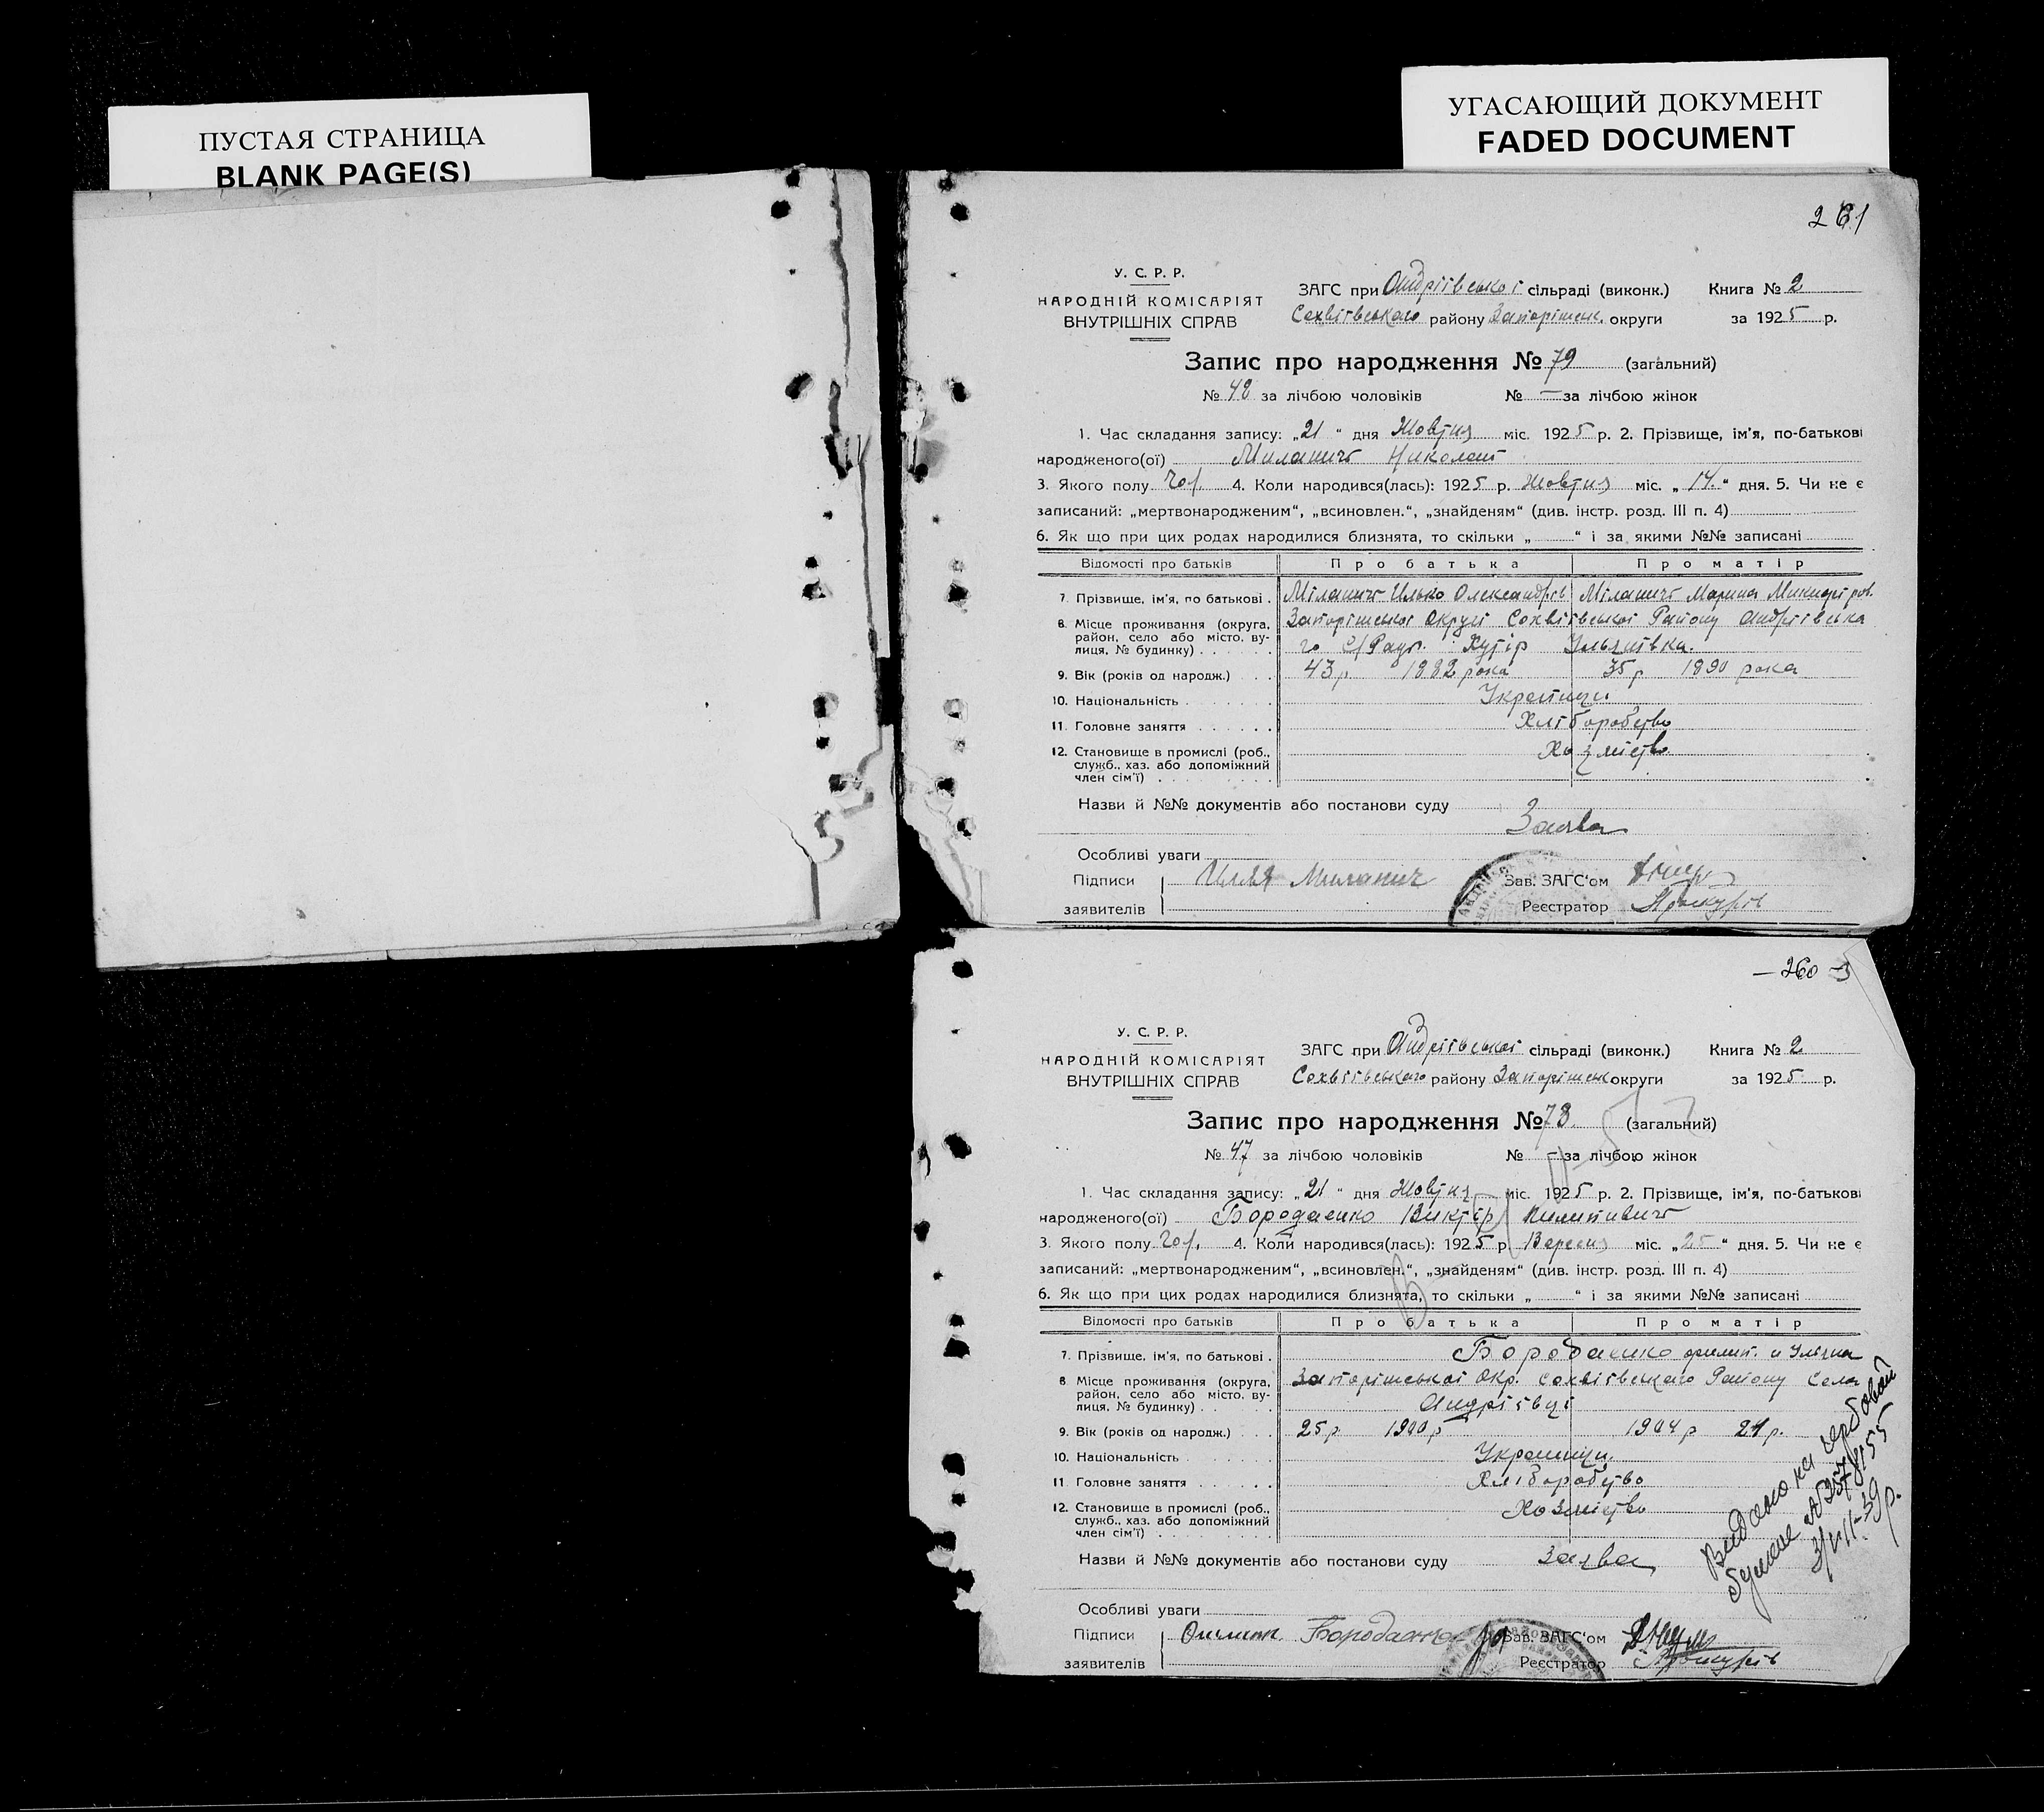 ПУСТАЯ СТРАНИЦА
BLANK PAGE(S)
УГАСАЮЩИЙ ДОКУМЕНТ
FADED DOCUMENT
261
У. С. Р. Р.
НАРОДНІЙ КОМІСАРІЯТ
ВНУТРІШНІХ СПРАВ
ЗАГС при Андріївської сільраді (виконк.) Книга № 2
району Запоріжськ. округи за 1925 р.
Запис про народження № 79 (загальний)
№ 48 за лічбою чоловіків № — за лічбою жінок
1. Час складання запису: „21“ дня Жовтня міс. 1925 р. 2. Прізвище, ім'я, по-батькові
народженого(ої) Миланич Николай
3. Якого полу чол. 4. Коли народився(лась): 1925 р. Жовтня міс. „14“ дня. 5. Чи не є
записаний: „мертвонародженим“, „всиновлен.“, „знайденям“ (див. інстр. розд. III п. 4)
6. Як що при цих родах народилися близнята, то скільки „ “ і за якими №№ записані
Відомості про батьків Про батька Про матір
7. Прізвище, ім'я, по батькові . Міланич Илько Олександрів Міланич Марина
8. Місце проживання (округа, Запоріжської Округи Району Андрівсько
район, село або місто, ву-
лиця, № будинку) . го С/Ради. Хутір Ульянівка.
9. Вік (років од народж.) 43 р 1882 рока 35 р 1890 рока
10. Національність Українці.
11. Головне заняття Хліборобство
12. Становище в промислі (роб., Хозяйство
служб., хаз. або допоміжний
член сім'ї)
Назви й №№ документів або постанови суду
Заява
Особливі уваги
Підписи Илля Миланич Зав. ЗАГС'ом
заявителів Реєстратор
— 260 —
У. С. Р. Р.
НАРОДНІЙ КОМІСАРІЯТ
ВНУТРІШНІХ СПРАВ
ЗАГС при Андріївської сільраді (виконк.) Книга № 2
району Запоріжськ округи за 1925 р.
Запис про народження № 78 (загальний)
№ 47 за лічбою чоловіків № — за лічбою жінок
1. Час складання запису: „21“ дня Жовтня міс. 1925 р. 2. Прізвище, ім'я, по-батькові
народженого(ої) Бородаенко Виктір Пилипивич
3. Якого полу чол. 4. Коли народився(лась): 1925 р. Вересня міс. „25“ дня. 5. Чи не є
записаний: „мертвонародженим“, „всиновлен.“, „знайденям“ (див. інстр. розд. III п. 4)
6. Як що при цих родах народилися близнята, то скільки „ “ і за якими №№ записані
Відомості про батьків Про батька Про матір
7. Прізвище, ім'я, по батькові . Бородаенко филип. и Уляна
8 Місце проживання (округа, Запоріжської Окр. Району Села
район, село або місто, ву-
лиця, № будинку) . Андріївці
9. Вік (років од народж.) 25 р 1900 р 1904 р 21 р.
10. Національність Українци.
11. Головне заняття Хліборобство
12. Становище в промислі (роб., Хозяйство
служб., хаз. або допоміжний
член сім'ї)
Назви й №№ документів або постанови суду Заява
Видано на гербовой
бумаге
Особливі уваги
Підписи Бородаенко Зав. ЗАГС'ом
заявителів Реєстратор